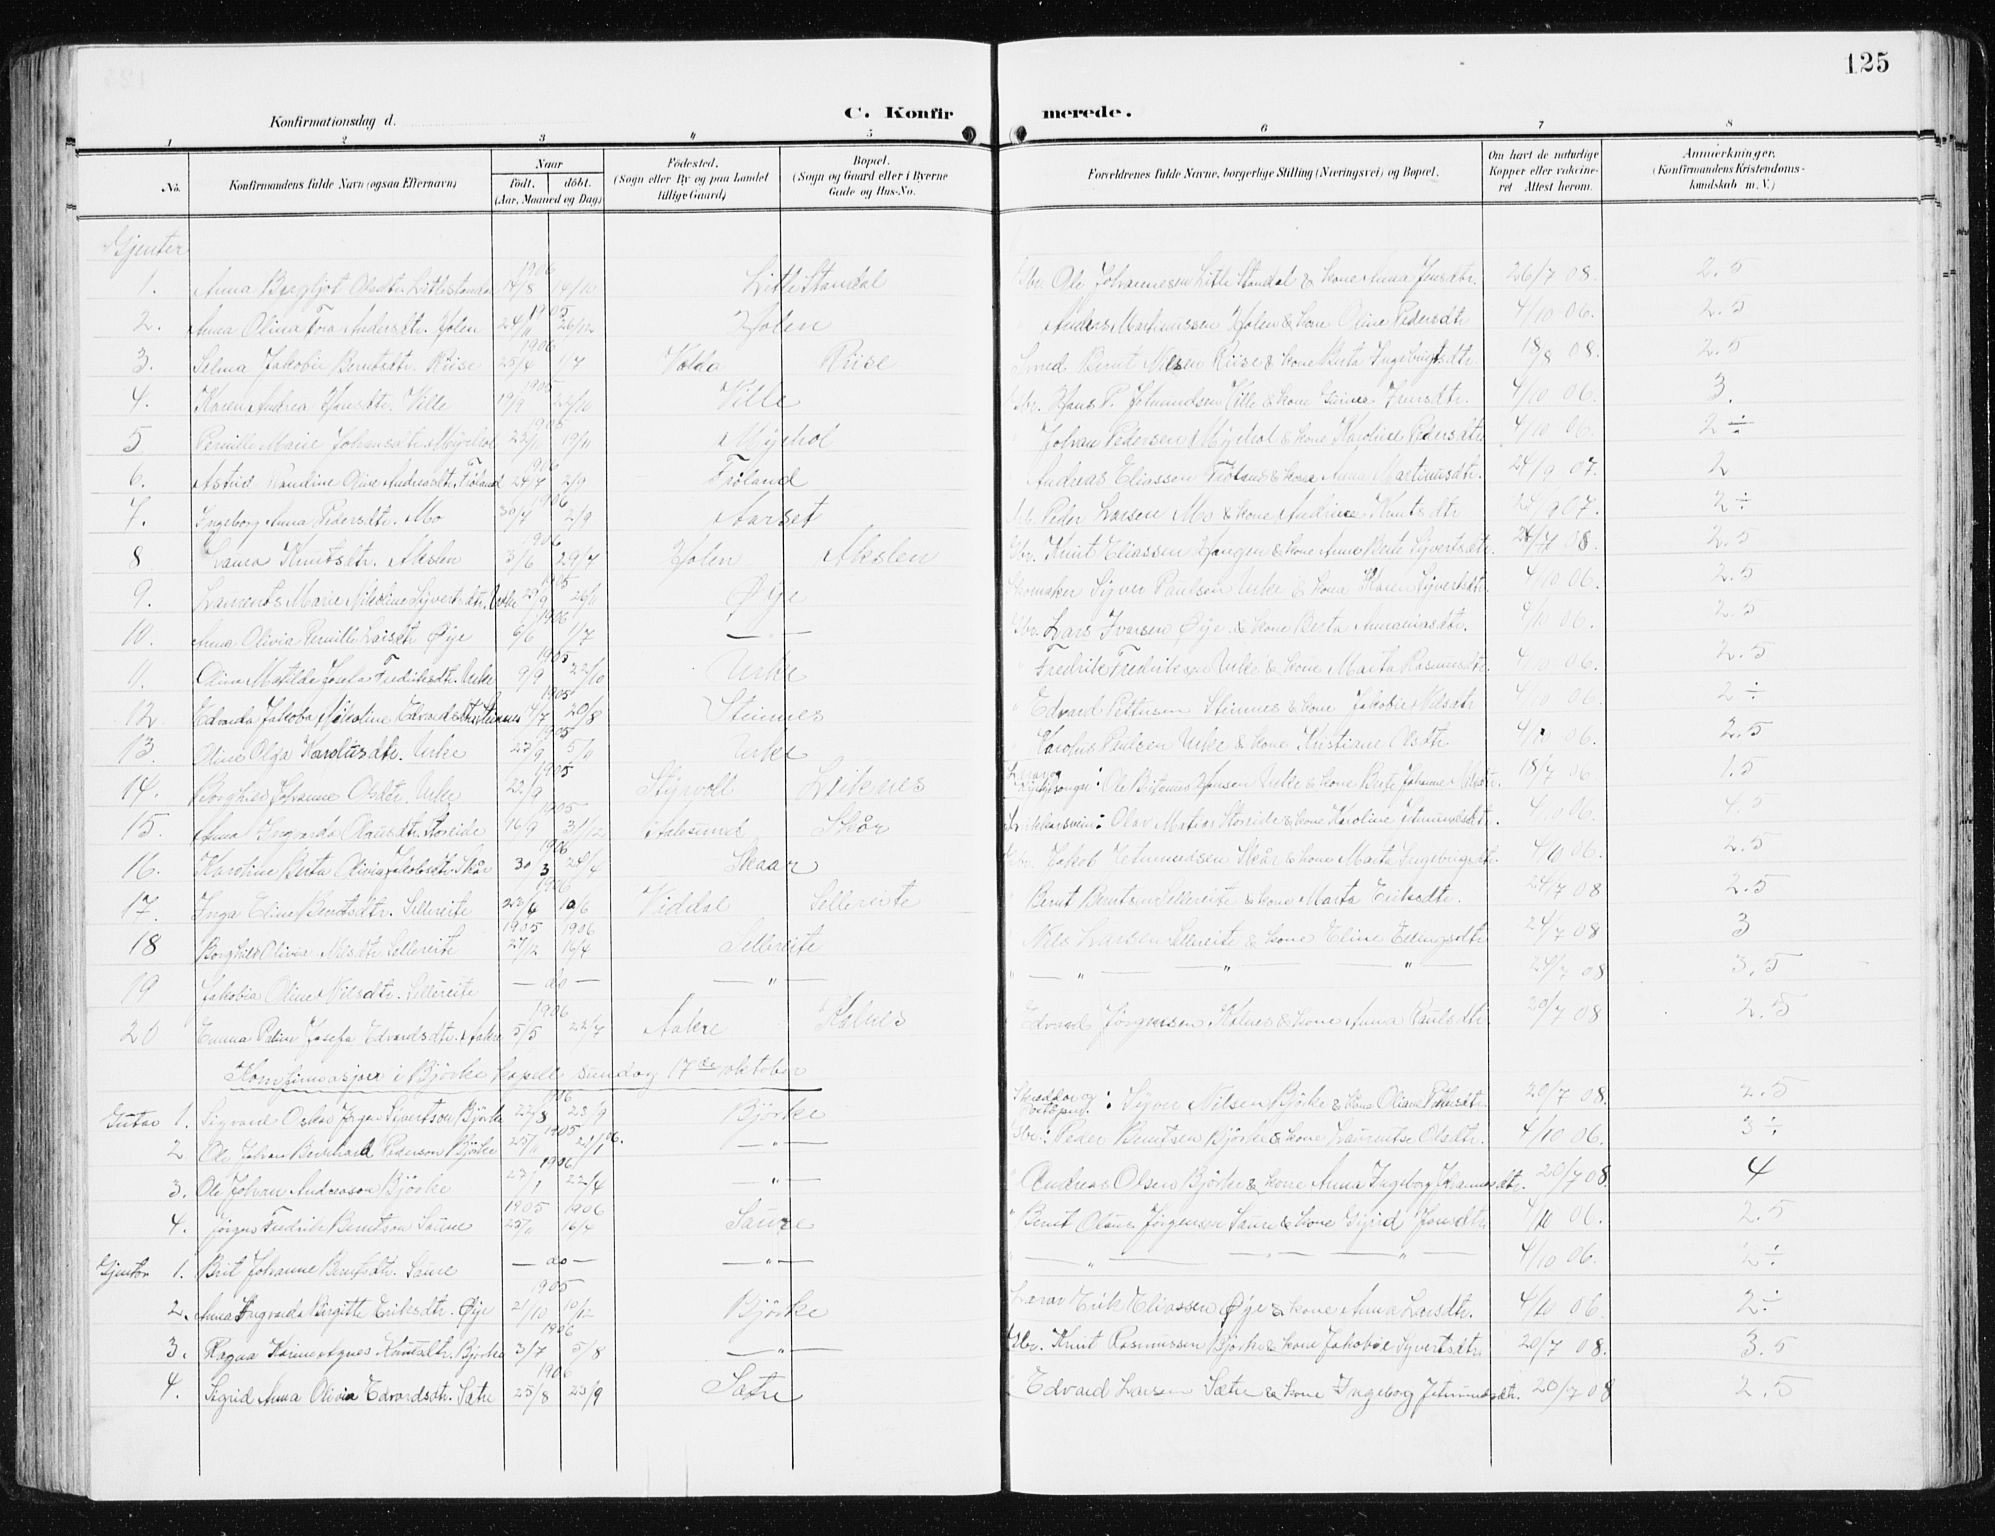 125
C. Konfirmerede.
Konfirmationsdag d.
1 2 3 4 5 6 7 8
No. Konfirmandens fulde Navn (ogsaa Efternavn) Naar født. døbt. (Aar, Maaned og Dag) Fødested. (Sogn eller By og paa Landet tillige Gaard) Bopæl. (Sogn og Gaard eller i Byerne Gade og Hus-No. Forældrenes fulde Navne, borgerlige Stilling (Næringsvei) og Bopæl. Om havt de naturlige Kopper eller vaksineret Attest herom. Anmærkninger. (Konfirmandens Kristendomskundskab m. V.)
Gjenter
1. Anna Bergljot Olsdtr. Litlestandal 1906 14/8 14/10 Litle Standal Gbr. Ole Johannesen Litle Standal & kone Anna Jensdtr. 26/7 08. 2.5
2. Anna Olina Tora Andersdtr. Holen 1905 24/11 26/12 Holen Anders Martinussen Holen & kone Oline Pedersdtr 4/10 06. 2.5
3. Selma Jakobie Berntsdtr. Riise 1906 25/4 1/7 Volda Riise Smed Bernt Nilsen Riise & kone Berta Ingebrigtsdtr 18/8 08. 2.5
4. Karen Andrea Hansdtr. Ville 1905 19/9 Ville Hans P. Ville & kone 4/10 06 3.
5 Pernille Marie Johansdtr. Myrhol 1905 19/11 Myrhol Johan Pedersen Myrhol & kone Karoline Pedersdtr. 4/10 06. 2 ÷
6. Astrid Pauline Oline Andreasdtr. Tröland 1906 24/7 2/9 Tröland Andreas Eliassen Tröland & kone Anna Martinusdtr. 24/9 07. 2
7. Ingeborg Anna Pedersdtr. Mo 1906 30/7 2/9 Aarset Peder Larsen Mo & kone Andrine Knutsdtr 24/9 07. 2 ÷
8 Laura Knutsdtr. Akslen 1906 3/6 29/7 Holen Akslen Gbr. Knut Eliassen Haugen & kone Anne Berte Syvertsdtr. 24/7 08. 2.5
9. Marie Nikoline Syvertsdtr. Urke 1905 29/9 26/11 Øye Skomaker Syver Paulsen Urke & kona Karen Syvertsdtr. 4/10 06. 2.5
10. Anna Olivia Pernille Larsdtr Øye 1906 6/6 1/7 — " — Gbr. Lars Ivarsen Øye & kone Berta Ananiasdtr. 4/10 06. 2.5
11. Oline Matilde Josefa Fredriksdtr. Urke 1905 9/9 22/10 Urke " Fredrik Fredriksen Urke & kone Marta Rasmusdtr. 4/10 06. 2.5
12. Edvarda Jakoba Nikoline Edvardsdtr. Stennes 1905 4/7 20/8 Stennes " Edvard Pettersen Stennes & kone Jakobie Nilsdtr 4/10 06. 2 ÷
13. Oline Olga Karolusdtr. Urke 1905 27/9 5/11 Urke " Karolus Paulsen Urke & kone Kristiane Olsdtr 4/10 06. 2.5
14. Borghild Johanne Olsdtr. Urke 1905 22/9 Styrvoll Leiknes Ole Hansen Urke & kone Berte Johanne 18/7 06 1.5
15. Anna Ingvarda Olausdtr. Storeide 1905 16/9 31/12 Aalesund Skår Olav Matias Storeide & kone Karoline 4/10 06.
16. Karoline Berta Olivia Jakobsdtr. Skår 1906 30/3 Skaar Jakob Skår & kone Marta Ingebrigtsdtr. 4/10 06. 2.5
17. Inga Eline Berntsdtr. Sellereite 1906 10/6 Viddal Sellereite " Bernt Berntsen Sellereite & kone Marta Eriksdtr. 24/7 08 2.5
18 Borghild Olivia Nilsdtr Sellereite 1905 27/12 1906 16/4 Sellereite " Nils Larsen Sellereite & kone Eline Ellingsdtr 24/7 08 3
19 Jakobia Oline Nilsdtr. Sellereite — do — — " — " — " — " — " — 24/7 08 3.5
20 Emma Petine Josefa Edvardsdtr. Aakre 1906 5/5 22/7 Aakre Kolnes " Edvard Jørgensen Kolnes & kone Anna Paulsdtr. 20/7 08 2.5
Konfirmasjon i Bjørke kapell sundag 17de oktober
Gutar 1. Sigvard Oskar Jørgen Sivertson Bjørke 1906 22/8 23/9 Bjørke Skreddar og : Syver Nilsen Bjørke & kona Oliane Pettersdtr. 20/7 08. 2.5
2 Ole Johan Bernhard Pederson Bjørke 1905 25/11 21/1 06. — " — Gbr: Peder Berntsen Bjørke & kone Laurentse Olsdtr. 4/10 06. 3 ÷
3. Ole Johan Andreasson Bjørke 1906 22/4 — " — " Andreas Olsen Bjørke & kone Anna Ingeborg Johannesdtr. 20/7 08. 4
4. Jørgen Fredrik Berntson Saure 1905 25/11 1906 16/4 Saure " Bernt Olaus Jørgensen Saure & kone Gjørid Jonsdtr. 4/10 06. 2.5
Gjentor 1. Brit Johanne Berntsdtr. Saure — do — — " — " — " — " — 4/10 06. 2 ÷
2. Anna Ingvarda Birgitte Eriksdtr. Øye 1905 21/10 10/12 Bjørke Lærar Erik Eliassen Øye & kone Anna Larsdtr. 4/10 06. 2 ÷
3. Ragna Karine Agnes Knutsdtr. Bjørke 1906 3/7 5/8 — " — Gbr. Knut Rasmussen Bjørke & kone Jakobie Syvertsdtr. 20/7 08. 3.5
4. Sigrid Anna Olivia Edvardsdtr. Sætre 1906 25/8 23/9 Sætre " Edvard Larsen Sætre & kone Ingeborg 20/7 08 2.5